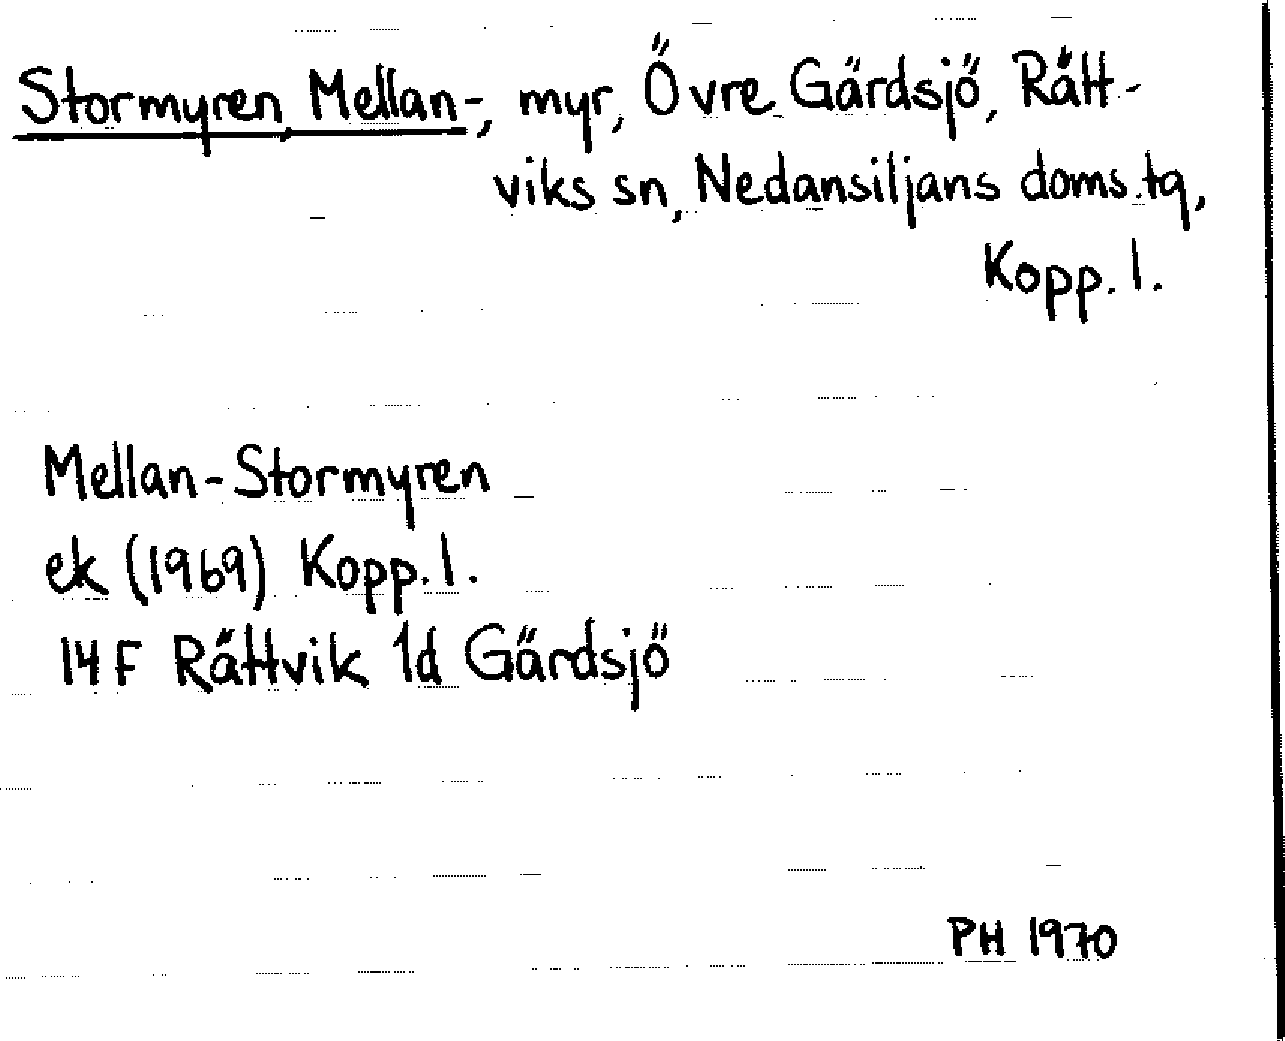 Stormyren, Mellan-, myr, Övre Gärdsjö, Rätt-
viks sn, Nedansiljans doms.tg,
Kopp. l.
Mellan-Stormyren
ek (1969) Kopp. l.
14 F Rättvik 1d Gärdsjö
PH 1970